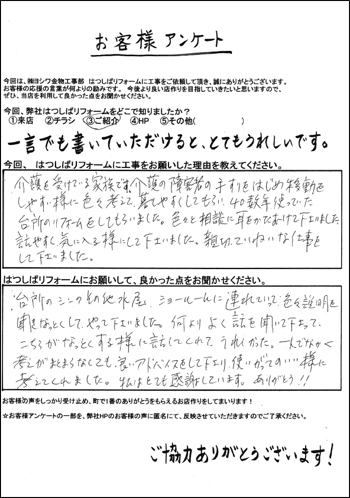 お客様 アンケート
今回は、㈱ヨシワ金物工事部 はつしばリフォームに工事をご依頼して頂き、誠にありがとうございます。
お客様の応援の言葉が何よりの励みです。今後より良い店作りを目指していきたいと思いますので、
ぜひ、当店を利用して良かった点をお聞かせください。
今回、弊社はつしばリフォームをどこで知りましたか？
①来店 ②チラシ ③ご紹介 ④HP ⑤その他( )
一言でも書いていただけると、とてもうれしいです。
今回、はつしばリフォームに工事をお願いした理由を教えてください。
介護を受けている家族です。介護の障害者の手すりをはじめ移動を
しやすい様に色々考えて、見やすくしてもらい、40数年使っていた
台所のリフォームをしてもらいました。色々と相談に耳をかたむけて下いました
話やすく気に入る様にして下いました。親切、ていねいな仕事を
して下いました。
はつしばリフォームにお願いして、良かった点をお聞かせください。
台所のシンクその他水屋、ショールームに連れていって、色々説明を
聞きなっとくして、やって下いました。何よりよく話を聞いて下さって、
こちらがなっとくする様に話してくれて、うれしかった。一人でなかなか
考えがまとまらなくても、良いアドバイスをして下さり、使いがってのいい様に
考えてくれました。私はとても感謝しています。ありがとう!!
お客様の声をしっかり受け止め、町で1番のありがとうをもらえるお店作りをしてまいります！
☆お客様アンケートの一部を、弊社HPのお客様の声に匿名にて、反映させていただきますのでご了承ください。
ご協力ありがとうございます！